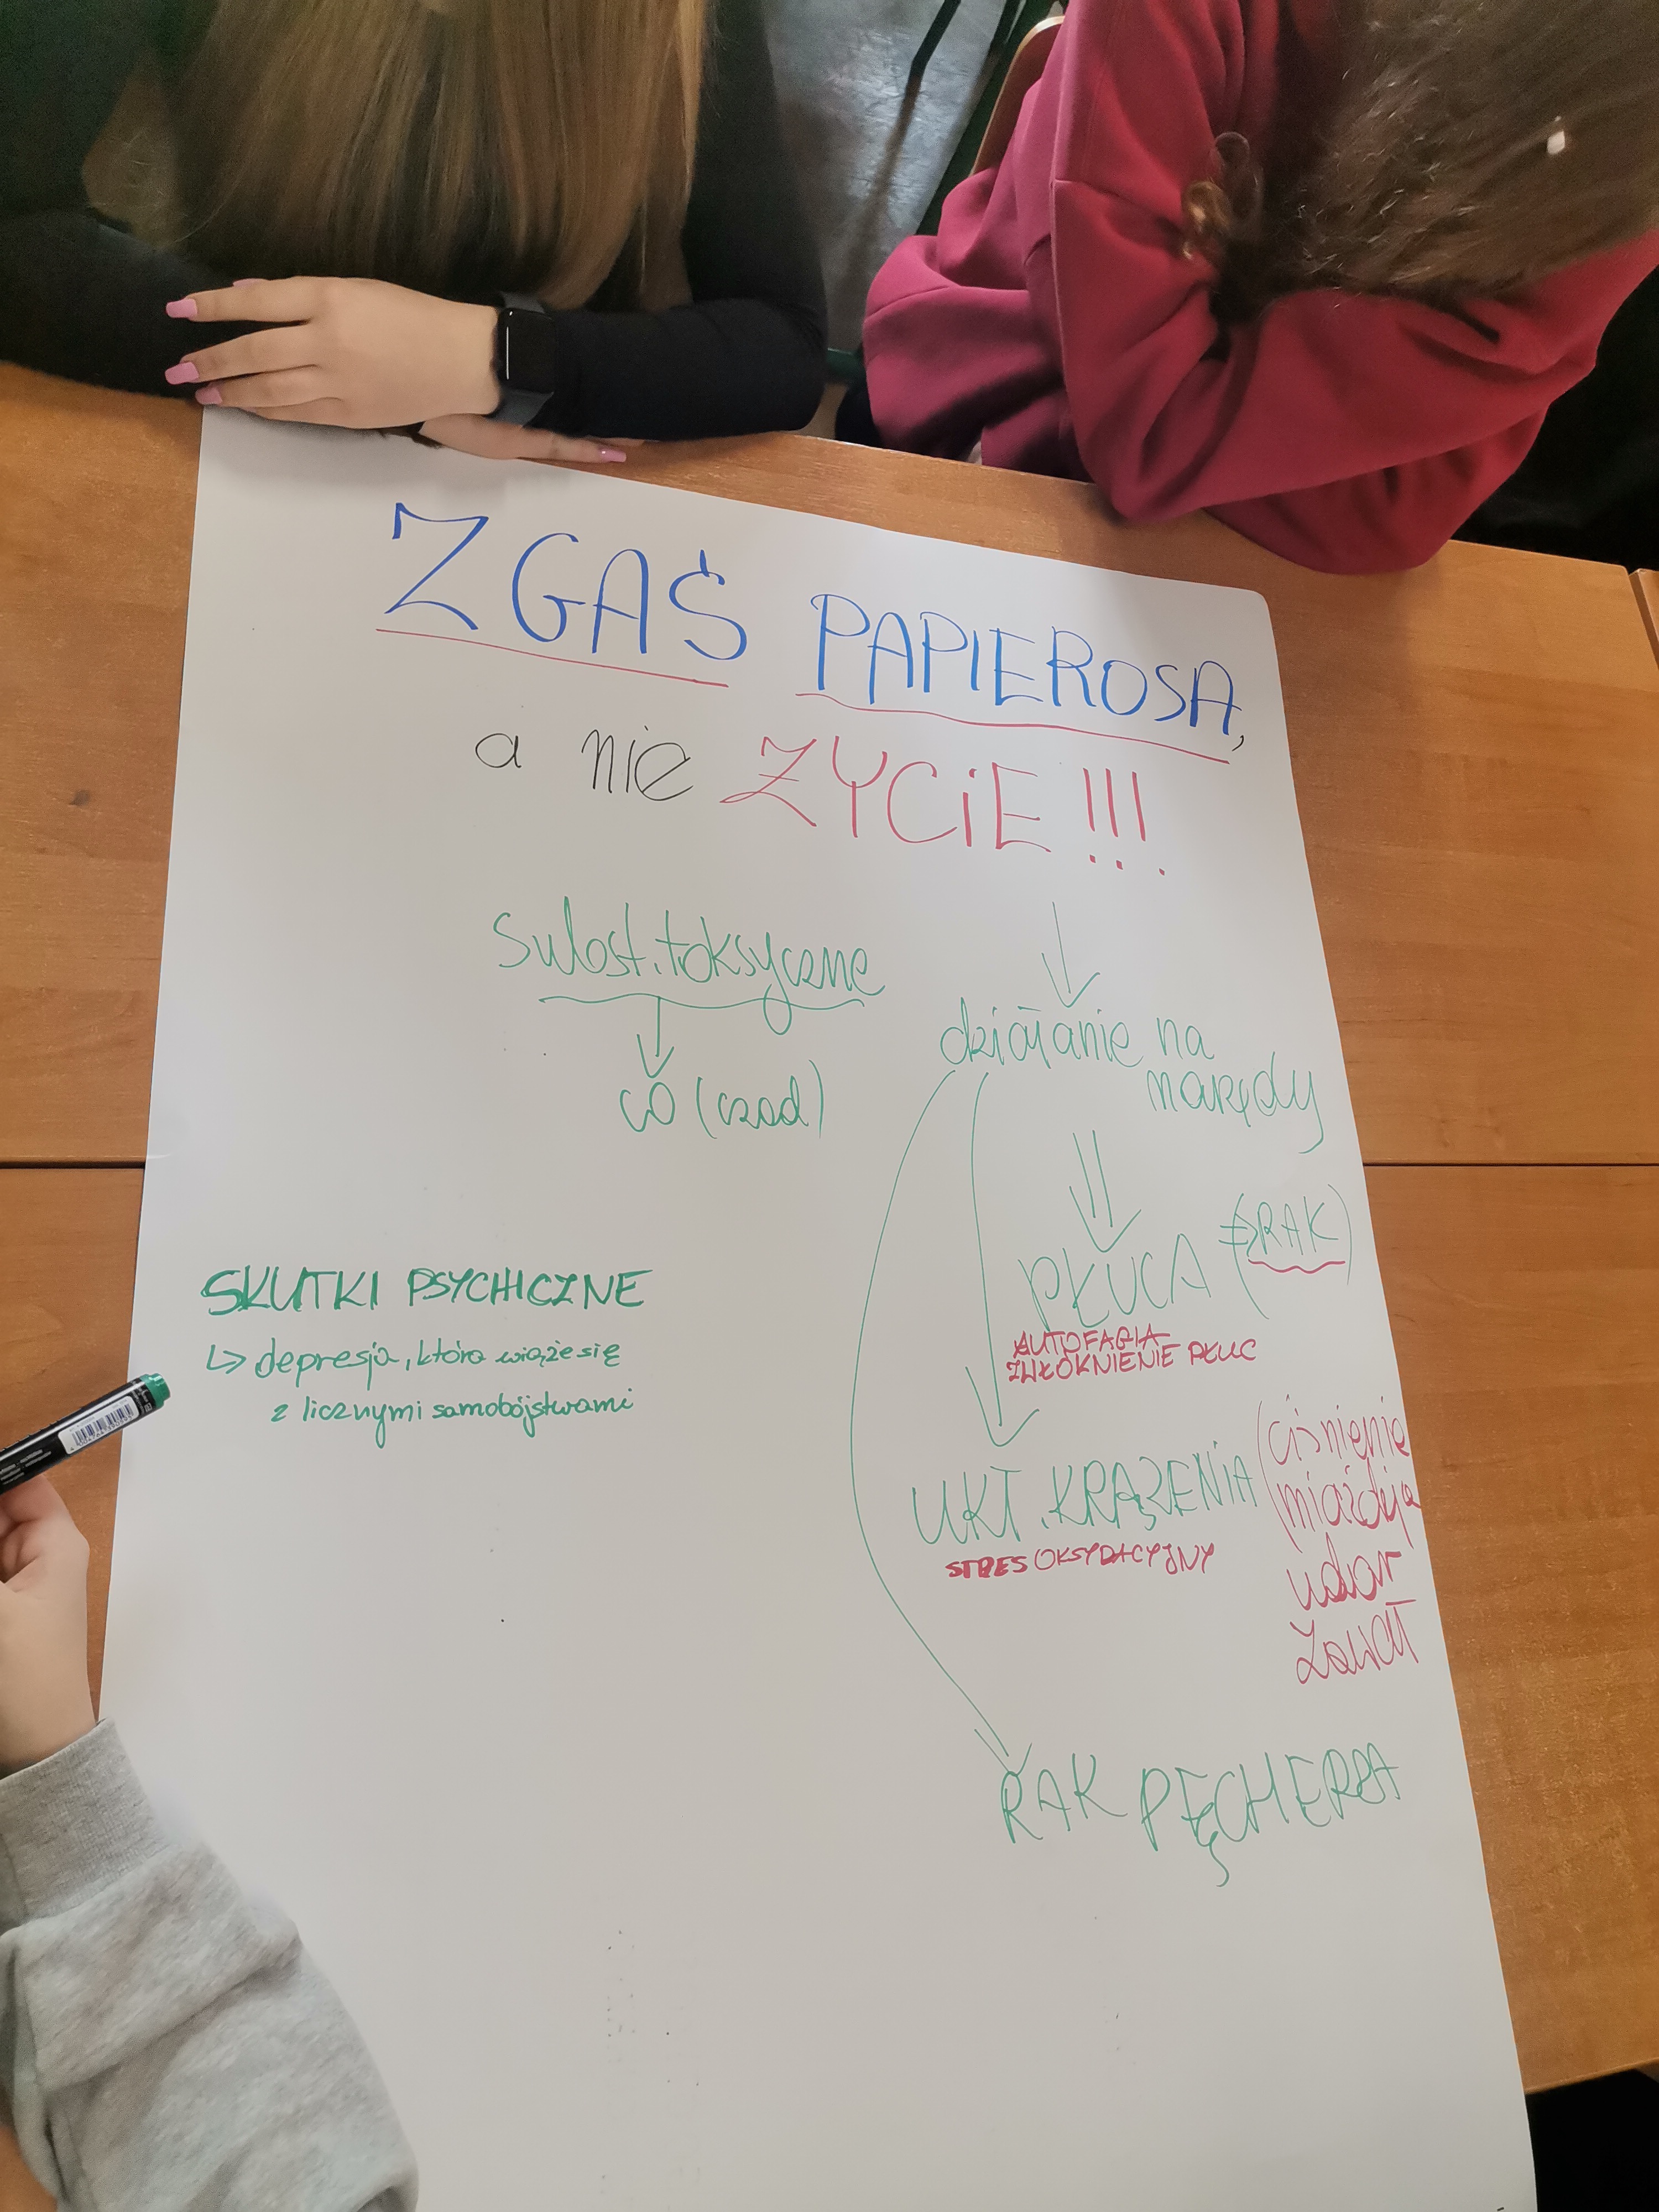 ZGAŚ PAPIEROSA,
a nie ŻYCiE !!!
Subst. toksyczne
CO (czad)
działanie na
narządy
PŁUCA (⇒RAK)
AUTOFAGIA
ZWŁÓKNIENIE PŁUC
UKŁ. KRĄŻENiA (ciśnienie
STRES OKSYDACYJNY
miażdżyca
udar
Zawał
RAK PĘCHERZA
SKUTKI PSYCHICZNE
↳ depresja, która wiąże się
z licznymi samobójstwami